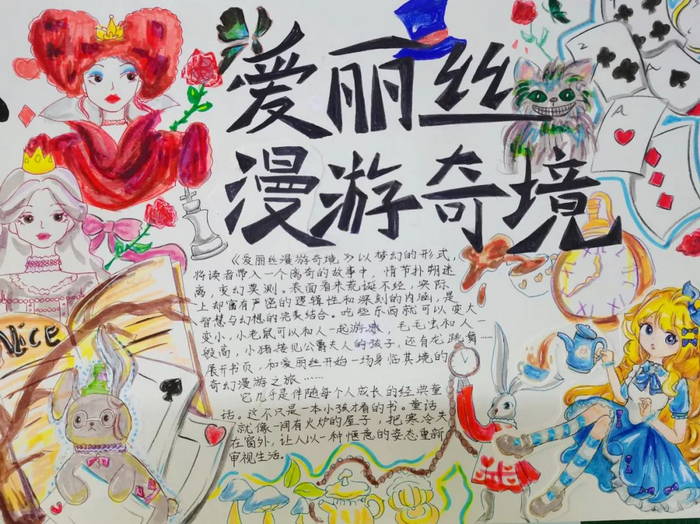 爱丽丝
漫游奇境
《爱丽丝漫游奇境》以梦幻的形式,
将读者带入一个离奇的故事中,情节扑朔迷
离,变幻莫测。表面看来荒诞不经,实际
上却富有严密的逻辑性和深刻的内涵,是
智慧与幻想的完美结合。吃些东西就可以变大
变小,小老鼠可以和人一起游泳,毛毛虫和人一
般高,小猪
展开书页,和爱丽丝开始一场身临其境的
奇幻漫游之旅……
它几乎是伴随每个人成长的经典童
话。这不只是一本小孩才看的书。童话
就像一间有火炉的屋子,把寒冷关
在窗外,让人以一种惬意的姿态重新
审视生活。
A
2
A